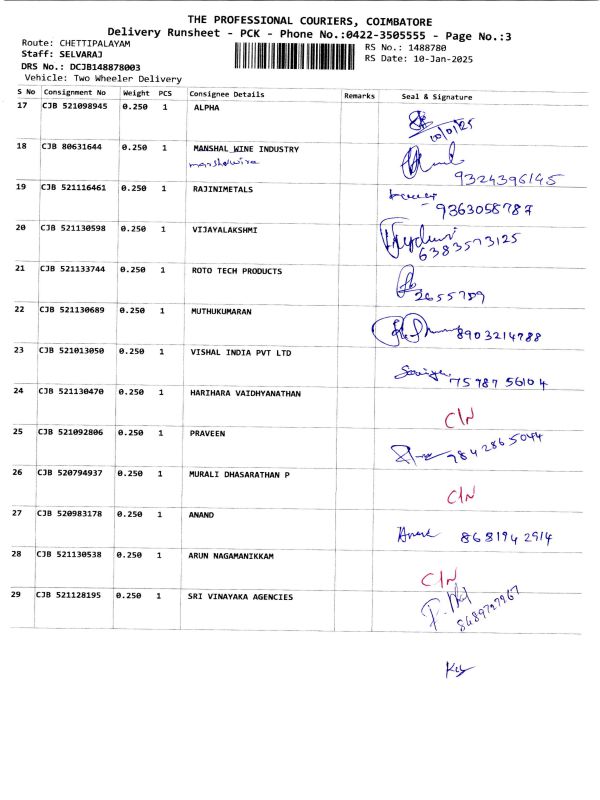 THE PROFESSIONAL COURIERS, COIMBATORE
Delivery Runsheet - PCK - Phone No.:0422-3505555 - Page No.:3
Route: CHETTIPALAYAM
RS No.: 1488780
Staff: SELVARAJ
RS Date: 10-Jan-2025
DRS No.: DCJB148878003
Vehicle: Two Wheeler Delivery
S No Consignment No Weight PCS Consignee Details Remarks Seal & Signature
17 CJB 521098945 0.250 1 ALPHA
10/01/25
18 CJB 80631644 0.250 1 MANSHAL WINE INDUSTRY
9324396145
19 CJB 521116461 0.250 1 RAJINIMETALS
9363058787
20 CJB 521130598 0.250 1 VIJAYALAKSHMI
6383573125
21 CJB 521133744 0.250 1 ROTO TECH PRODUCTS
2655789
22 CJB 521130689 0.250 1 MUTHUKUMARAN
8903214788
23 CJB 521013050 0.250 1 VISHAL INDIA PVT LTD
75787 56104
24 CJB 521130470 0.250 1 HARIHARA VAIDHYANATHAN
C/N
25 CJB 521092806 0.250 1 PRAVEEN
9842865044
26 CJB 520794937 0.250 1 MURALI DHASARATHAN P
C/N
27 CJB 520983178 0.250 1 ANAND
Anand 8681942914
28 CJB 521130538 0.250 1 ARUN NAGAMANIKKAM
C/N
29 CJB 521128195 0.250 1 SRI VINAYAKA AGENCIES
8489727967